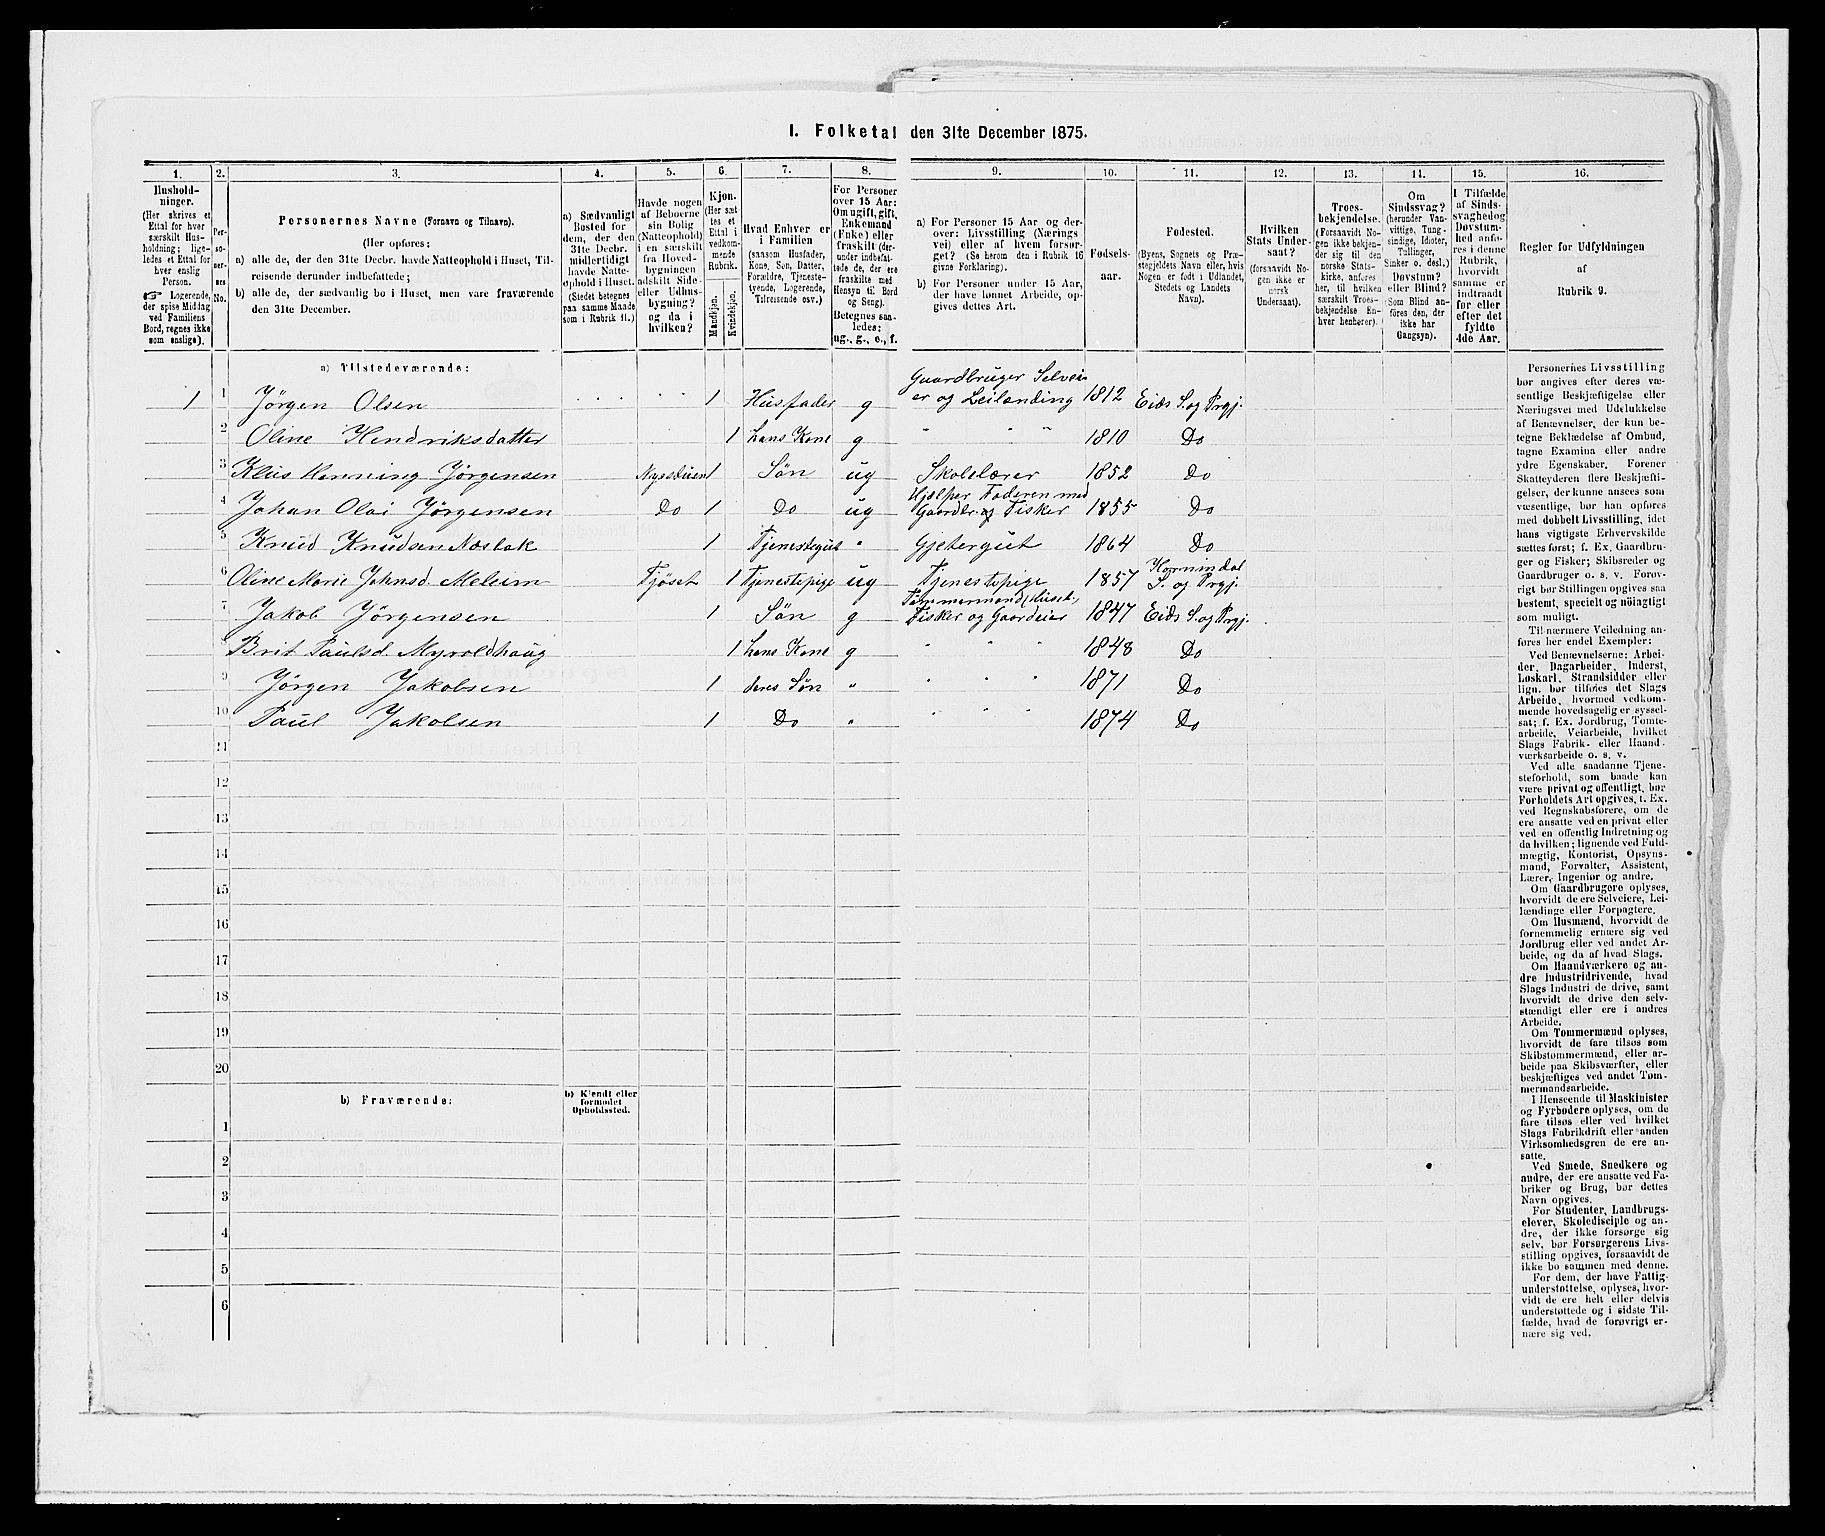 I. Folketal den 31te December 1875.
1. 2. 3. 4. 5. 6. 7. 8. 9. 10. 11. 12. 13. 14. 15. 16.
Hushold-
ninger.
(Her skrives et
Ettal for hver
særskilt Hus-
holdning; lige-
ledes et Ettal for
hver enslig
Person.
☞ Logerende,
der spise Middag
ved Familiens
Bord, regnes ikke
som enslige).
Per-
so-
ner-
nes
No.
Personernes Navne (Fornavn og Tilnavn).
(Her opføres:
a) alle de, der den 31te Decbr. havde Natteophold i Huset, Til-
reisende derunder indbefattede;
b) alle de, der sædvanlig bo i Huset, men vare fraværende
den 31te December.
a) Sædvanligt
Bosted for
dem, der den
31te Decbr.
midlertidigt
havde Natte-
ophold i Huset.
(Stedet betegnes
paa samme Maade
som i Rubrik 11.)
Havde nogen
af Beboerne
sin Bolig
(Natteophold)
i en særskilt
fra Hoved-
bygningen
adskilt Side-
eller Udhus-
bygning?
og da i
hvilken?
Kjøn.
(Her sæt
tes et
Ettal i
vedkom-
mende
Rubrik.
Mandkjøn.
Kvindekjøn.
Hvad Enhver er
i Familien
(saasom Husfader,
Kone, Søn, Datter,
Forældre, Tjeneste-
tyende, Logerende,
Tilreisende osv.)
For Personer
over 15 Aar:
Om ugift, gift,
Enkemand
(Enke) eller
fraskilt (der-
under indbefat-
tede de, der ere
fraskilte med
Hensyn til Bord
og Seng).
Betegnes saa-
ledes:
ug., g., e., f.
a) For Personer 15 Aar og der-
over: Livsstilling (Nærings
vei) eller af hvem forsør-
get? (Se herom den i Rubrik 16
givne Forklaring).
b) For Personer under 15 Aar,
der have lønnet Arbeide, op-
gives dettes Art.
Fødsels-
aar.
Fødested.
(Byens, Sognets og Præ-
stegjeldets Navn eller, hvis
Nogen er født i Udlandet,
Stedets og Landets
Navn).
Hvilken
Stats Under-
saat?
(forsaavidt No-
gen ikke er
norsk
Undersaat).
Troes-
bekjendelse.
(Forsaavidt No-
gen ikke bekjen-
der sig til den
norske Stats-
kirke, anføres
her, til hvilken
særskilt Troes-
bekjendelse En-
hver henhører).
Om
Sindssvag?
(herunder Van-
vittige, Tung-
sindige, Idioter,
Tullinger,
Sinker o. desl.)
Døvstum?
eller Blind?
(Som Blind an-
føres den, der
ikke har
Gangsyn).
I Tilfælde
af Sinds-
svaghed og
Døvstum-
hed anfø-
res i denne
Rubrik,
hvorvidt
samme er
indtraadt
før eller
efter det
fyldte
4de Aar.
Regler for Udfyldningen
af
Rubrik 9.
a) Tilstedeværende:
1 1 Jörgen Olsen 1 Husfader g Gaardbruger Selvei-
er og Leilænding 1812 Eids S. og Prgj.
2 Oline Hendriksdatter 1 hans Kone g " " " 1810 Do
3 Klus Henning Jörgensen 1 Søn ug Skolelærer 1852 Do
4 Johan Olai Jörgensen Do 1 Do ug Hjælper Faderen med
Gaardbr. og Fisker 1855 Do
5 Knud Knudsen Næsbak 1 Tjenestegut " Gjetergut 1864 Do
6 Oline Marie Johnsd. Meleim Fjöset 1 Tjenestepige ug Tjenestepige 1857 Hornindal
S. og Prgj.
7 Jakob Jörgensen 1 Søn g Tømmermand (Huset.)
Fisker og Gaardeier 1847 Eids S. og Prgj.
8 Brit Paulsd. Myroldhaug 1 hans Kone g " " " 1848 Do
9 Jörgen Jakobsen 1 deres Søn " " " " 1871 Do
10 Paul Jakobsen 1 Do " " " " 1874 Do
11
12
13
14
15
16
17
18
19
20
b) Fraværende:
b) Kjendt eller
formodet
Opholdssted.
1
2
3
4
5
6
Personernes Livsstilling
bør angives efter deres væ-
sentlige Beskjæftigelse eller
Næringsvei med Udelukkelse
af Benævnelser, der kun be-
tegne Beklædelse af Ombud,
tagne Examina eller andre
ydre Egenskaber. Forener
Skatteyderen flere Beskjæfti-
gelser, der kunne ansees som
væsentlige, bør han opføres
med dobbelt Livsstilling, idet
hans vigtigste Erhvervskilde
sættes først; f. Ex. Gaardbru-
ger og Fisker; Skibsreder og
Gaardbruger o. s. v. Forøv-
rigt bør Stillingen opgives saa
bestemt, specielt og nøiagtigt
som muligt.
Til nærmere Veiledning an-
føres her endel Exempler:
Ved Benævnelserne: Arbei-
der, Dagarbeider, Inderst,
Løskarl, Strandsidder eller
lign. bør tilføies det Slags
Arbeide, hvormed vedkom-
mende hovedsagelig er syssel-
sat; f. Ex. Jordbrug, Tomte-
arbeide, Veiarbeide, hvilket
Slags Fabrik- eller Haand-
værksarbeide o. s. v.
Ved alle saadanne Tjene-
steforhold, som baade kan
være privat og offentligt, bør
Forholdets Art opgives, t. Ex.
ved Regnskabsførere, om de
ere ansatte ved en privat eller
ved en offentlig Indretning og
da hvilken; lignende ved Fuld-
mægtig, Kontorist, Opsyns-
mand, Forvalter, Assistent,
Lærer, Ingeniør og andre.
Om Gaardbrugere oplyses,
hvorvidt de ere Selveiere, Lei-
lændinge eller Forpagtere.
Om Husmænd, hvorvidt de
fornemmelig ernære sig ved
Jordbrug eller ved andet Ar-
beide, og da af hvad Slags.
Om Haandværkere og an-
dre Industridrivende, hvad
Slags Industri de drive, samt
hvorvidt de drive den selv-
stændigt eller ere i andres
Arbeide.
Om Tømmermænd oplyses,
hvorvidt de fare tilsøs som
Skibstømmermænd, eller ar-
beide paa Skibsværfter, eller
beskjæftiges ved andet Tøm-
mermandsarbeide.
I Henseende til Maskinister
og Fyrbødere oplyses, om de
fare tilsøs eller ved hvilket
Slags Fabrikdrift eller anden
Virksomhedsgren de ere an-
satte.
Ved Smede, Snedkere og
andre, der ere ansatte ved Fa-
briker og Brug, bør dettes
Navn opgives.
For Studenter, Landbrugs-
elever, Skoledisciple og an-
dre, der ikke forsørge sig
selv, bør Forsørgerens Livs-
stilling opgives, forsaavidt de
ikke bo sammen med denne.
For dem, der have Fattig-
understøttelse, oplyses, hvor-
vidt de ere helt eller delvis
understøttede og i sidste Til-
fælde, hvad de forøvrigt er-
nære sig ved.